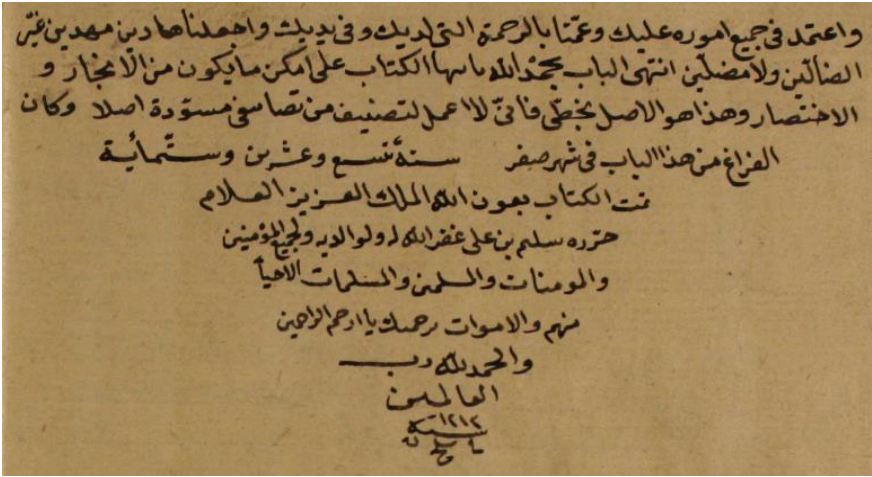 واعتمد فى جميع اموره عليك وعمّنا بالرحمة التى لديك وفى يديك واجعلنا هادين مهدين غير
الضالّين ولا مضلّين انتهى الباب بحمد الله بانتها الكتاب على امكن ما يكون من الايجاز و
الاختصار وهذا هو الاصل بخطّى فانىّ لا اعمل لتصنيف من تصانيفى مسوّدة اصلا وكان
الفراغ من هذا الباب فى شهر صفر سنة تسع وعشرين وستّماية
تمت الكتاب بعون الله الملك العزيز العلام
حرره سليم بن على غفر الله له ولوالديه ولجميع المؤمنين
والمومنات والمسلمين والمسلمات الاحيا
منهم والاموات برحمتك يا ارحم الراحمين
والحمد لله رب
العالمين
سنة ١٢١٢